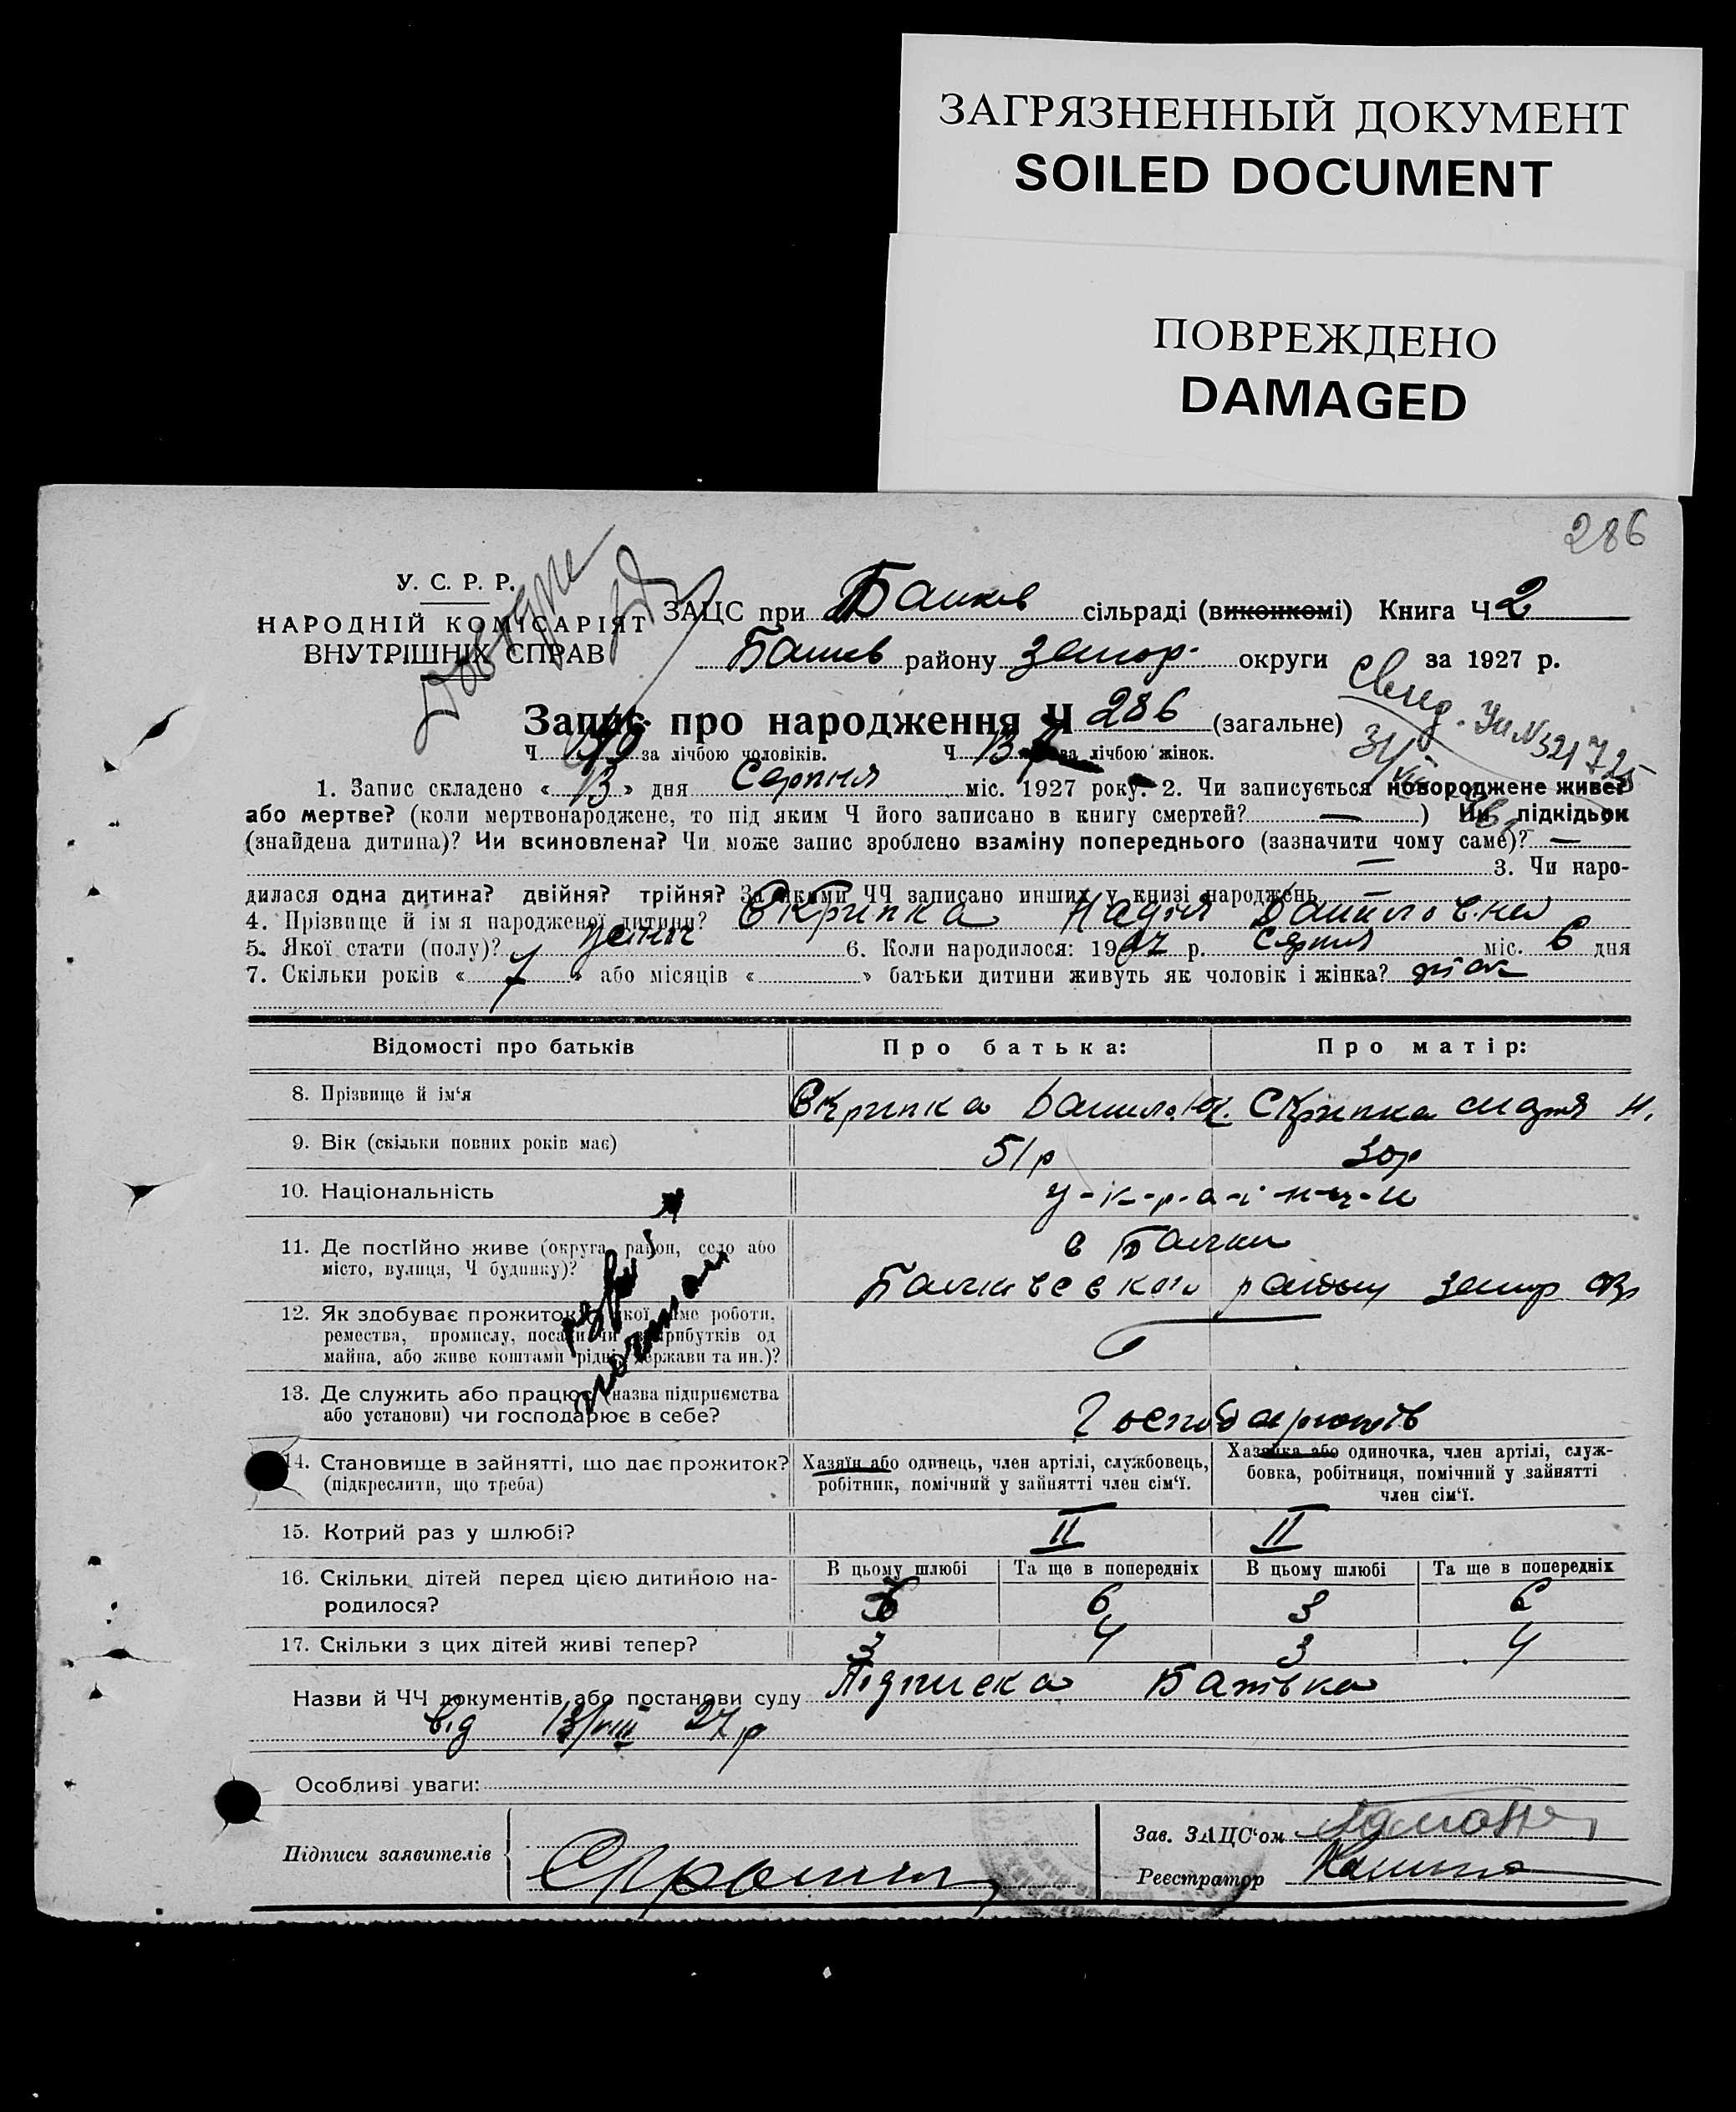 ЗАГРЯЗНЕННЫЙ ДОКУМЕНТ
SOILED DOCUMENT
ПОВРЕЖДЕНО
DAMAGED
286
У. С. Р. Р.
НАРОДНІЙ КОМІСАРІЯТ
ВНУТРІШНІХ СПРАВ
ЗАЦС при сільраді (виконкомі) Книга Ч 2
району Запор. округи за 1927 р.
Запис про народження Ч 286 (загальне)
Ч за лічбою чоловіків. Ч за лічбою жінок.
1. Запис складено « 13 » дня Серпня міс. 1927 року. 2. Чи записується новороджене живе?
або мертве? (коли мертвонароджене, то під яким Ч його записано в книгу смертей? — ) Чи підкідьок
(знайдена дитина)? Чи всиновлена? Чи може запис зроблено взаміну попереднього (зазначити чому саме)? —
— 3. Чи наро-
дилася одна дитина? двійня? трійня? За якими ЧЧ записано инших у книзі народжень —
4. Прізвище й ім'я народженої дитини? Скрипка Надія Даниловна
5. Якої стати (полу)? 6. Коли народилося: 1927 р. Серпня міс. 6 дня
7. Скільки років « 7 » або місяців « » батьки дитини живуть як чоловік і жінка? так
Відомості про батьків Про батька: Про матір:
8. Прізвище й ім'я Скрипка Данило Скрипка Марія
9. Вік (скільки повних років має) 51р 30р
10. Національність у-к-р-а-ї-н-ц-и
11. Де постійно живе (округа, район, село або
місто, вулиця, Ч будинку)? с Балки
Балківського району Запор окр
12. Як здобуває прожиток (з якої саме роботи,
ремества, промислу, посади чи з прибутків од
майна, або живе коштами рідні, держави та ин.)?
13. Де служить або працює (назва підприємства
або установи) чи господарює в себе? Господарюють
14. Становище в зайнятті, що дає прожиток?
(підкреслити, що треба)
Хазяїн або одинець, член артілі, службовець,
робітник, помічний у зайнятті член сім'ї.
Хазяйка або одиночка, член артілі, служ-
бовка, робітниця, помічний у зайнятті
член сім'ї.
15. Котрий раз у шлюбі? II II
В цьому шлюбі Та ще в попередніх В цьому шлюбі Та ще в попередніх
16. Скільки дітей перед цією дитиною на-
родилося? 3 6 3 6
17. Скільки з цих дітей живі тепер? 3 4 3 4
Назви й ЧЧ документів або постанови суду Підписка Батька
від 13/VIII 27 р
Особливі уваги:
Підписи заявителів
Зав. ЗАЦС'ом
Реєстратор